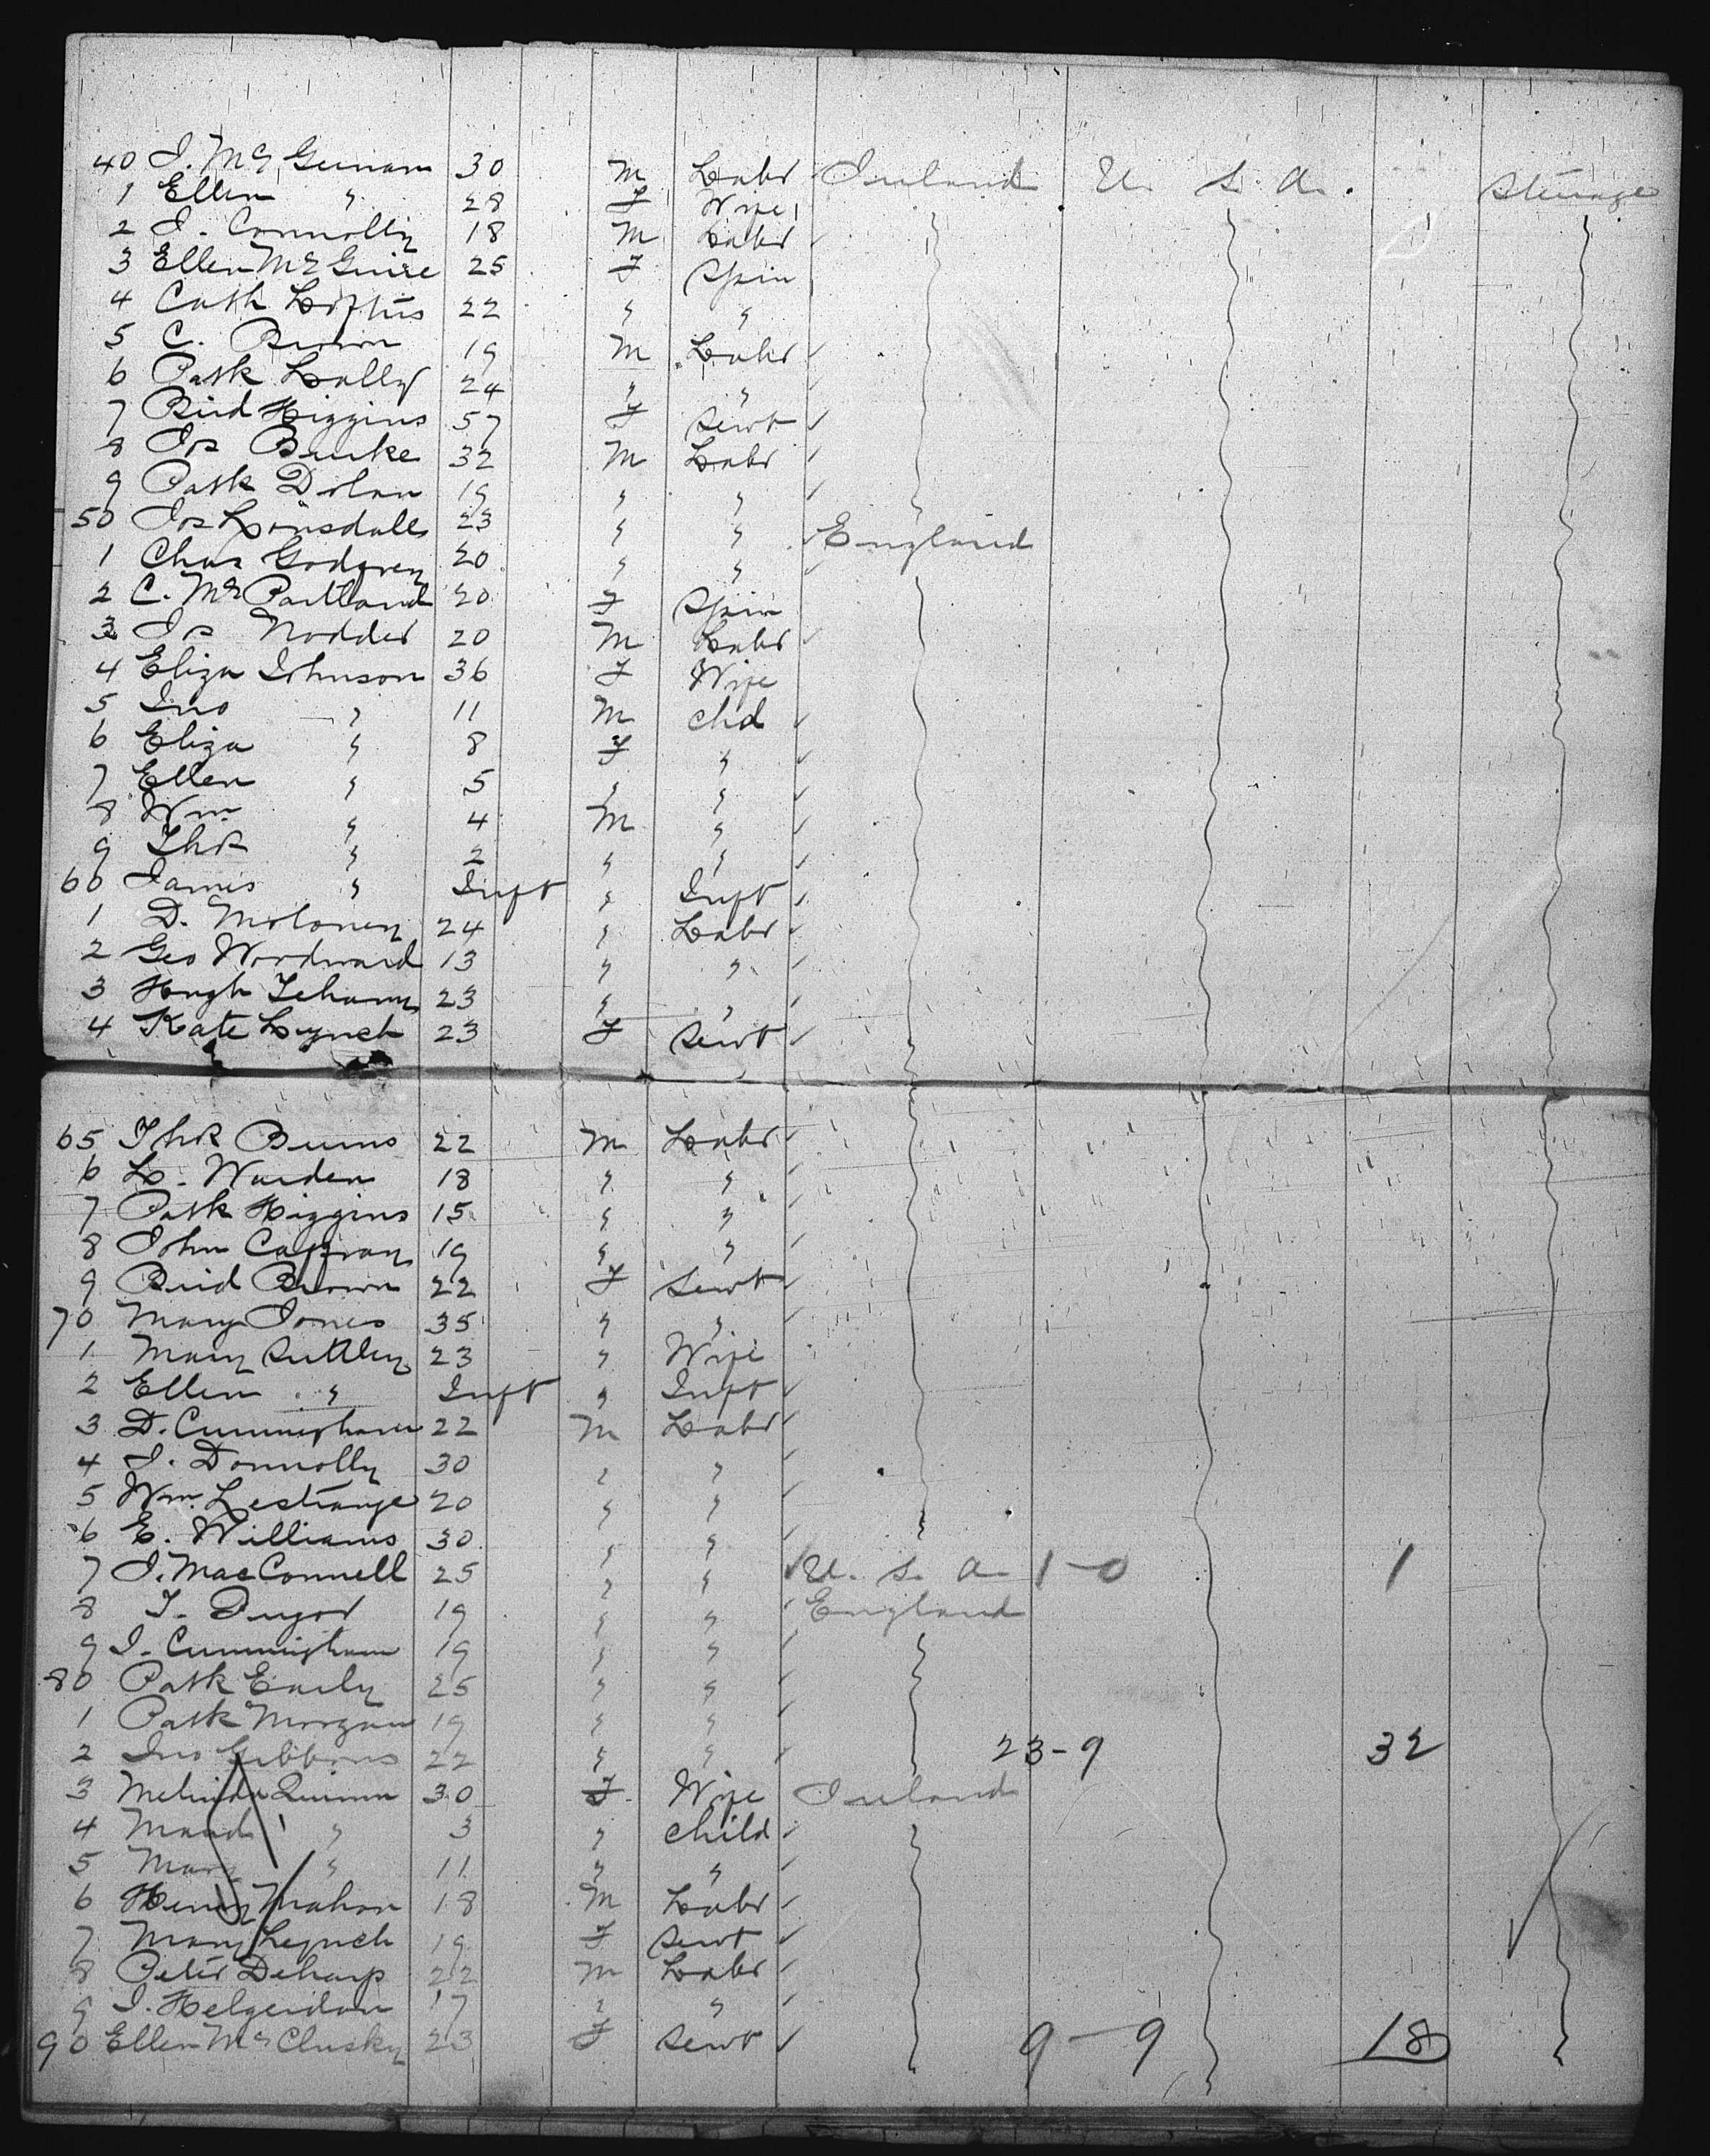 40 J. McGuinan 30 M Labr Ireland U. S. A. Steerage
1 Ellen " 28 F Wife
2 J. Connolly 18 M Labr
3 Ellen McGuire 25 F Spin
4 Cath Loftus 22 " "
5 C. Brown 19 M Labr
6 Patk Lally 24 " "
7 Brid Higgins 57 F Servt
8 Jos Burke 32 M Labr
9 Patk Dolan 19 " "
50 Jos Lonsdale 23 " " England
1 Chas Godfrey 20 " "
2 C. McPartland 20 F Spin
3 Jos Nodder 20 M Labr
4 Eliza Johnson 36 F Wife
5 Jno " 11 M Chd
6 Eliza " 8 F "
7 Ellen " 5 " "
8 Wm " 4 M "
9 Thos " 2 " "
60 James " Inft " Inft
1 D. Moloney 24 " Labr
2 Geo Woodward 13 " "
3 Hugh 23 " "
4 Kate Lynch 23 F Servt
65 Thos Burns 22 M Labr
6 L. Warden 18 " "
7 Patk Higgins 15 " "
8 John Caffray 19 " "
9 Brid Brown 22 F Servt
70 Mary Jones 35 " "
1 Mary Suttley 23 " Wife
2 Ellen " Inft " Inft
3 D. Cunningham 22 M Labr
4 J. Donnolly 30 " "
5 Wm. Lestrange 20 " "
6 E. Williams 30 " "
7 J. MacConnell 25 " " U. S. A. 1-0 1
8 T. 19 " " England
9 J. Cunningham 19 " "
80 Patk Early 25 " "
1 Patk Morgan 19 " "
2 Jno Gibbons 22 " " 23-9 32
3 Melinda Quinn 30 F Wife Ireland
4 Maud " 3 " Child
5 Mary " 11 " "
6 Henry Mahon 18 M Labr
7 Mary Lynch 19 F Servt
8 Peter 22 M Labr
9 J. 17 " "
90 Ellen McClusky 23 F Servt 9-9 18